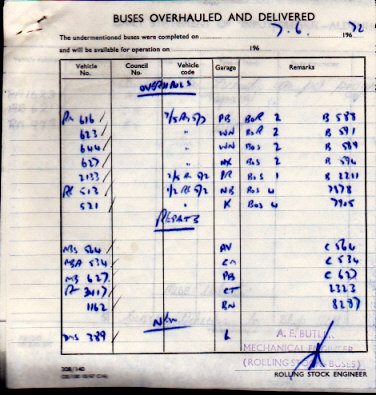 BUSES OVERHAULED AND DELIVERED
7.6. 1972
The undermentioned buses were completed on 196
and will be available for operation on 196
Vehicle No. Council No. Vehicle code Garage Remarks
OVERHAULS
RM 616 2/5 RM 5/3 PB BOR 2 B 588
623 " WN BOR 2 B 591
644 " WN BOS 2 B 589
627 " AX BOS 2 B 594
2133 2/5 R 5/2 PR BOS 1 B 2211
RF 513 1/2 RF 5/2 NB BOS 4 7978
521 " K BOS 4 7905
REPAINTS
MBS 564 AV C 564
MBA 534 C 534
MB 627 PB C 627
RT 3417 CT 2323
1162 BN 8287
New
DMS 389 L
A. E. BUTLER
MECHANICAL ENGINEER
(ROLLING STOCK BUSES)
ROLLING STOCK ENGINEER
308/140